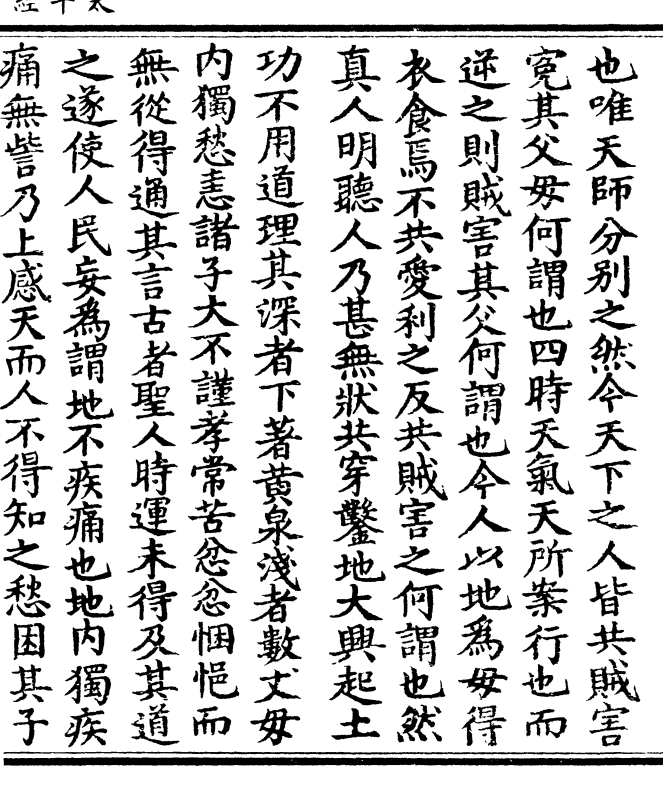 也唯天師分别之然今天下之人皆共賊害
寃其父毋何謂也四時天氣天所案行也而
逆之則賊害其父何謂也今人以地爲毋得
衣食焉不共愛利之反共賊害之何謂也然
真人明聽人乃甚無狀共穿鑿地大興起土
功不用道理其深者下著黄泉淺者數丈毋
内獨愁恚諸子大不謹孝常苦忿忿悃悒而
無從得通其言古者聖人時運未得及其道
之遂使人民妄爲謂地不疾痛也地内獨疾
痛無訾乃上感天而人不得知之愁困其子